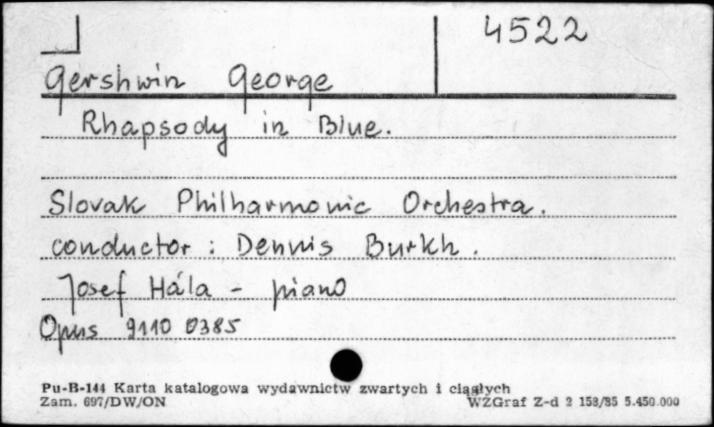 4522
Gershwin George
Rhapsody in Blue.
Slovak Philharmonic Orchestra.
conductor : Dennis Burkh.
Josef Hála - piano
Opus 9110 0385
Pu-B-144 Karta katalogowa wydawnictw zwartych i ciągłych
Zam. 697/DW/ON WZGraf Z-d 2 158/85 5.450.000